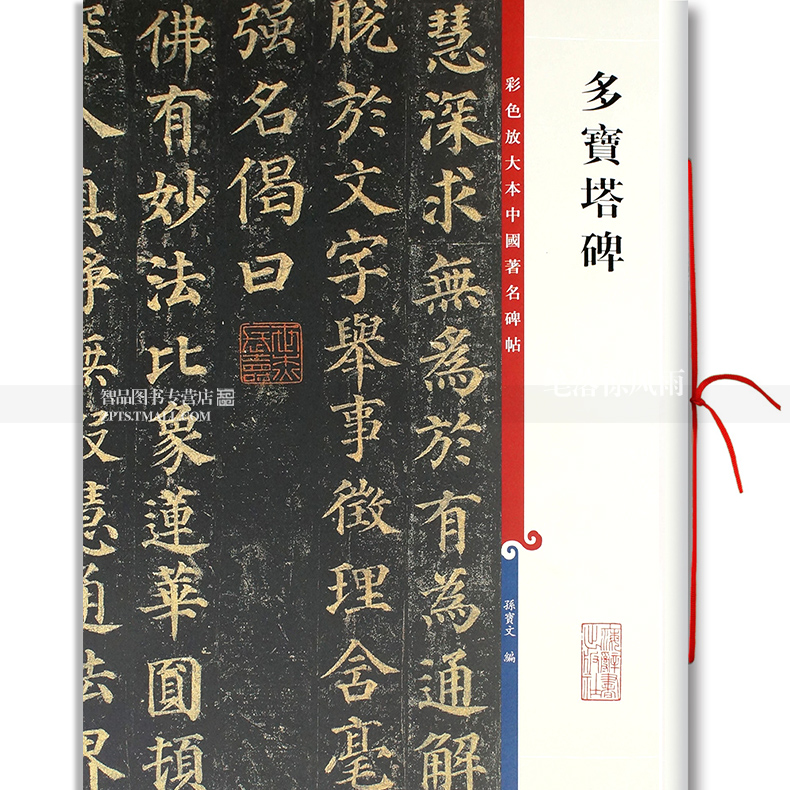 多寶塔碑
彩色放大本中國著名碑帖
孫寶文 編
上海辭書出版社
慧深求無為於有為通解
脫於文字舉事徵理含毫
强名偈曰
佛有妙法比象蓮華圓頓
深入真净無殁慧通法界
智品图书专营店
ZPTS.TMALL.COM